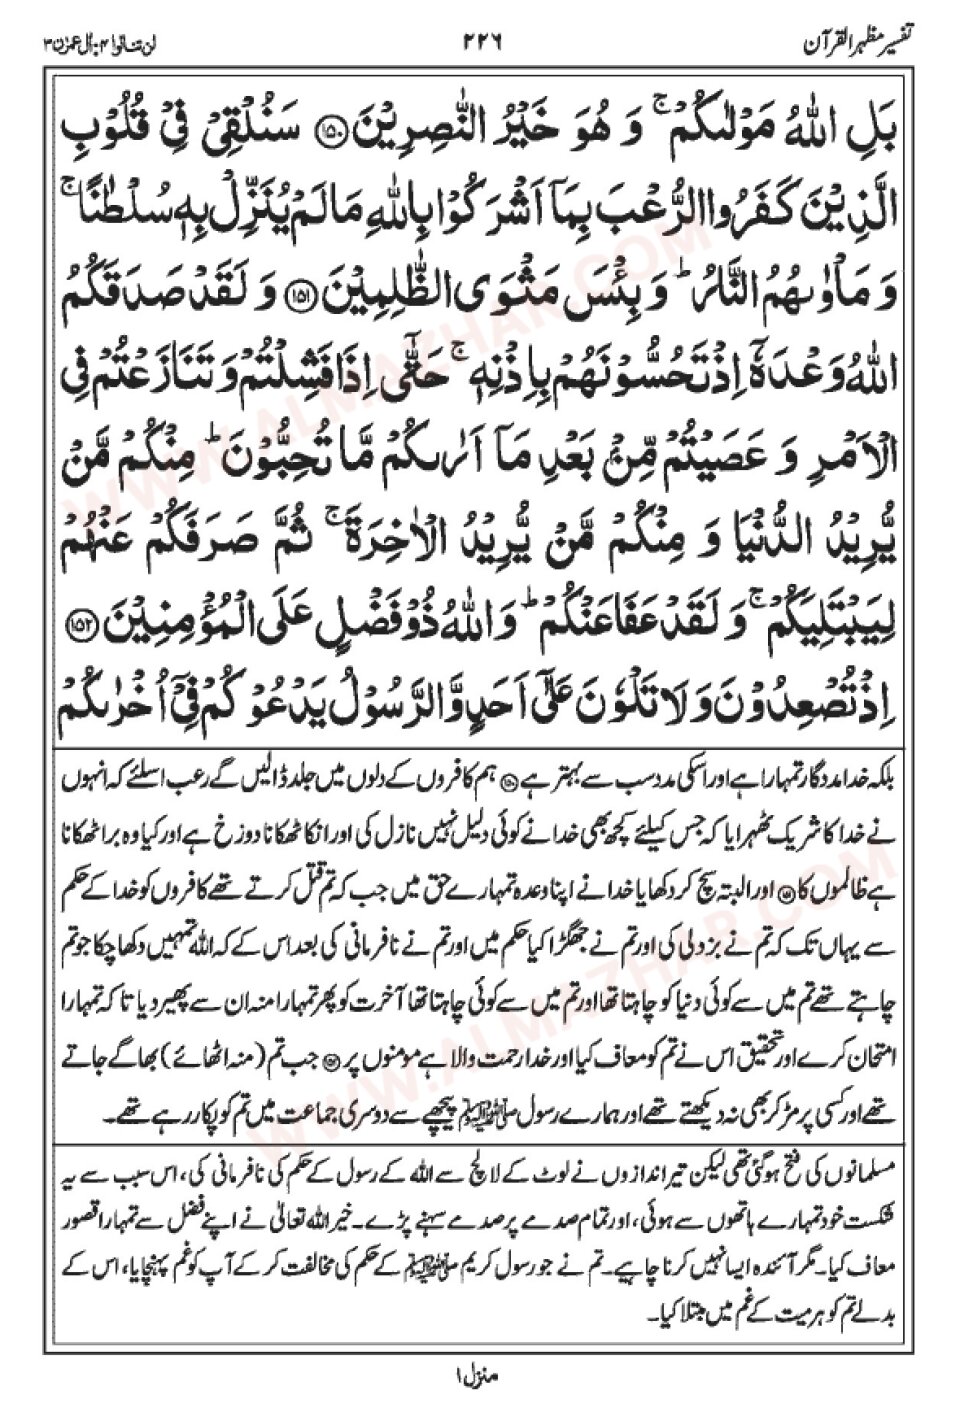 تفسیر مظہر القرآن
۲۲۶
لن تنالوا ۴: اٰل عمرٰن ۳
بَلِ اللّٰهُ مَوْلٰىكُمْ ۚ وَ هُوَ خَيْرُ النّٰصِرِيْنَ ﴿۱۵۰﴾ سَنُلْقِيْ فِيْ قُلُوْبِ
الَّذِيْنَ كَفَرُوا الرُّعْبَ بِمَاۤ اَشْرَكُوْا بِاللّٰهِ مَا لَمْ يُنَزِّلْ بِهٖ سُلْطٰنًا ۚ
وَ مَاْوٰىهُمُ النَّارُ ؕ وَ بِئْسَ مَثْوَى الظّٰلِمِيْنَ ﴿۱۵۱﴾ وَ لَقَدْ صَدَقَكُمُ
اللّٰهُ وَعْدَهٗۤ اِذْ تَحُسُّوْنَهُمْ بِاِذْنِهٖ ۚ حَتّٰۤى اِذَا فَشِلْتُمْ وَ تَنَازَعْتُمْ فِي
الْاَمْرِ وَ عَصَيْتُمْ مِّنْۢ بَعْدِ مَاۤ اَرٰىكُمْ مَّا تُحِبُّوْنَ ؕ مِنْكُمْ مَّنْ
يُّرِيْدُ الدُّنْيَا وَ مِنْكُمْ مَّنْ يُّرِيْدُ الْاٰخِرَةَ ۚ ثُمَّ صَرَفَكُمْ عَنْهُمْ
لِيَبْتَلِيَكُمْ ۚ وَ لَقَدْ عَفَا عَنْكُمْ ؕ وَ اللّٰهُ ذُوْ فَضْلٍ عَلَى الْمُؤْمِنِيْنَ ﴿۱۵۲﴾
اِذْ تُصْعِدُوْنَ وَ لَا تَلْوٗنَ عَلٰۤى اَحَدٍ وَّ الرَّسُوْلُ يَدْعُوْكُمْ فِيْۤ اُخْرٰىكُمْ
بلکہ خدا مددگار تمہارا ہے اور اسکی مدد سب سے بہتر ہے ﴿۱۵۰﴾ ہم کافروں کے دلوں میں جلد ڈالیں گے رعب اسلئے کہ انہوں
نے خدا کا شریک ٹھہرایا کہ جس کیلئے کچھ بھی خدا نے کوئی دلیل نہیں نازل کی اور انکا ٹھکانا دوزخ ہے اور کیا وہ برا ٹھکانا
ہے ظالموں کا ﴿۱۵۱﴾ اور البتہ سچ کر دکھایا خدا نے اپنا وعدہ تمہارے حق میں جب کہ تم قتل کرتے تھے کافروں کو خدا کے حکم
سے یہاں تک کہ تم نے بزدلی کی اور تم نے جھگڑا کیا حکم میں اور تم نے نافرمانی کی بعد اس کے کہ اللہ تمہیں دکھا چکا جو تم
چاہتے تھے تم میں سے کوئی دنیا کو چاہتا تھا اور تم میں سے کوئی چاہتا تھا آخرت کو پھر تمہارا منہ ان سے پھیر دیا تا کہ تمہارا
امتحان کرے اور تحقیق اس نے تم کو معاف کیا اور خدا رحمت والا ہے مومنوں پر ﴿۱۵۲﴾ جب تم (منہ اٹھائے) بھاگے جاتے
تھے اور کسی پر مڑ کر بھی نہ دیکھتے تھے اور ہمارے رسول ﷺ پیچھے سے دوسری جماعت میں تم کو پکار رہے تھے۔
مسلمانوں کی فتح ہوگئی تھی لیکن تیر اندازوں نے لوٹ کے لالچ سے اللہ کے رسول کے حکم کی نافرمانی کی، اس سبب سے یہ
شکست خود تمہارے ہاتھوں سے ہوئی، اور تمام صدمے پر صدمے سہنے پڑے۔ خیر اللہ تعالیٰ نے اپنے فضل سے تمہارا قصور
معاف کیا۔ مگر آئندہ ایسا نہیں کرنا چاہیے۔ تم نے جو رسول کریم ﷺ کے حکم کی مخالفت کر کے آپ کو غم پہنچایا، اس کے
بدلے تم کو ہرمیت کے غم میں مبتلا کیا۔
منزل ۱
WWW.ALMAZHAR.COM
WWW.ALMAZHAR.COM